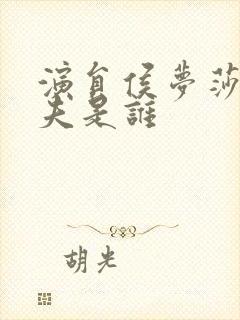 演員侯夢莎
夫是誰
胡光